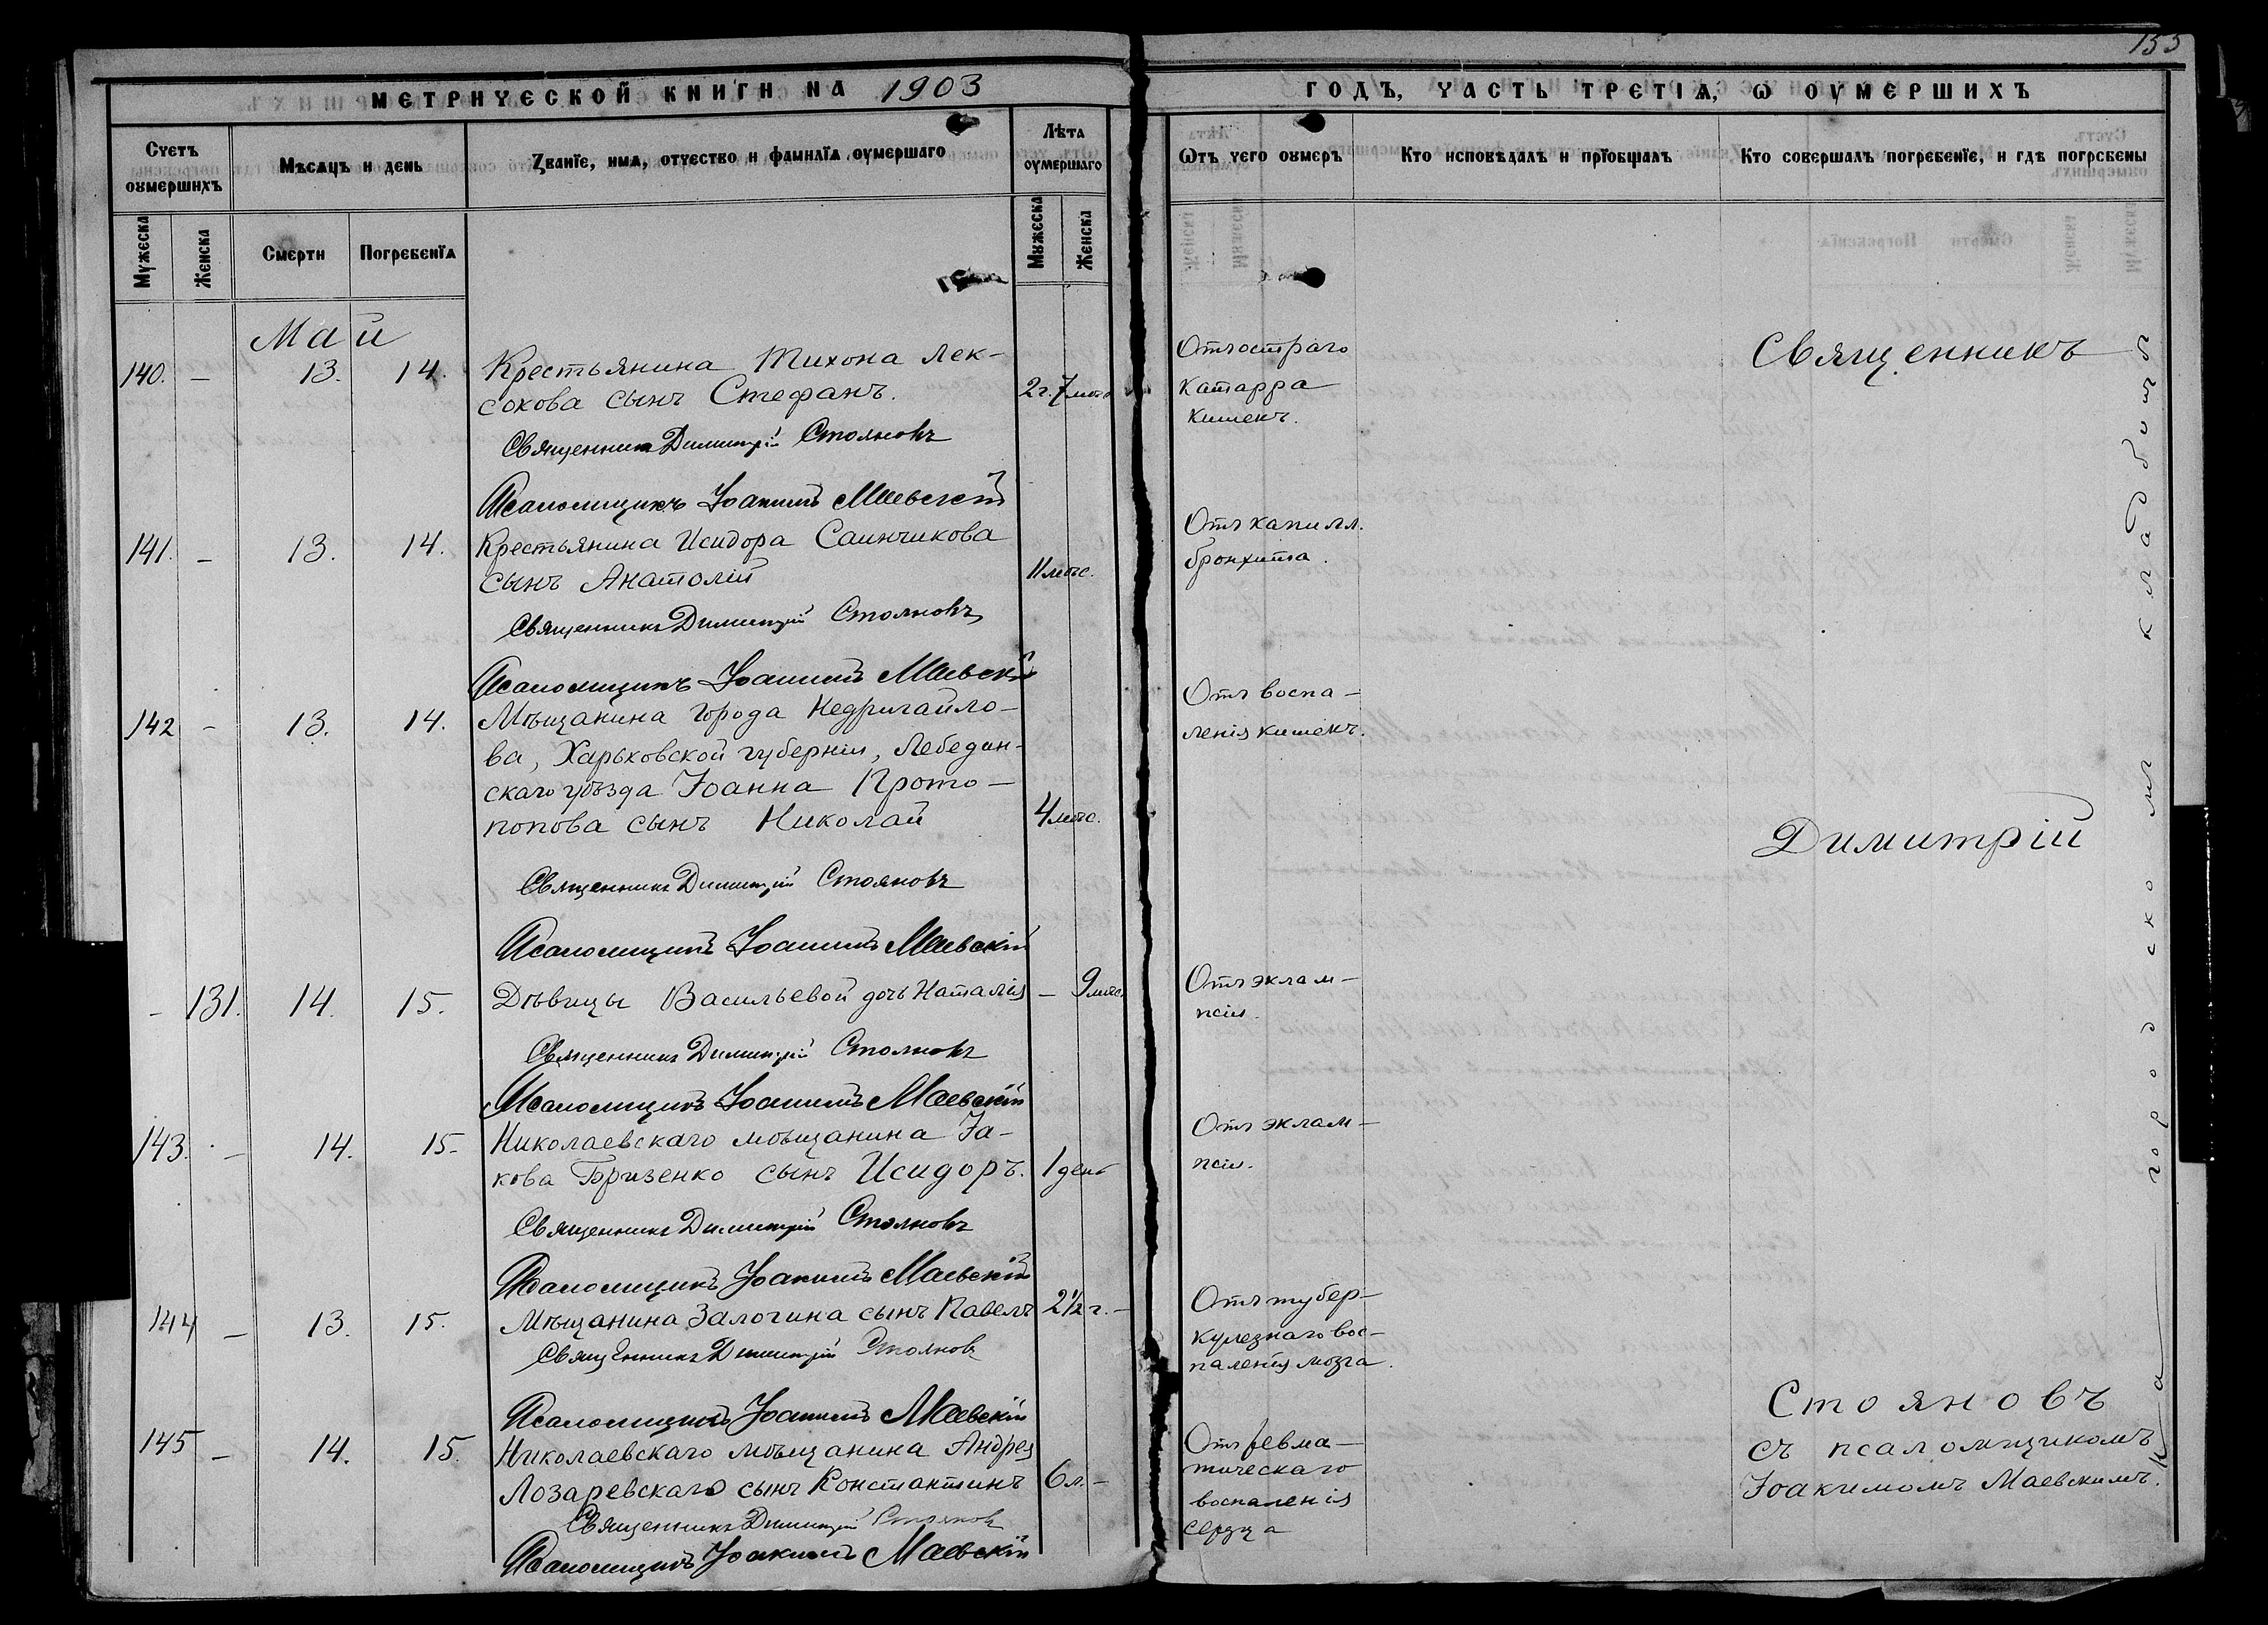 153
МЕТРИЧЕСКОЙ КНИГИ НА 1903
ГОДЪ, ЧАСТЬ ТРЕТІѦ, Ѡ ОУМЕРШИХЪ
Счетъ оумершихъ
Мѣсяцъ и день
Званїе, имѧ, отчество и фамилїѧ оумершаго
Лѣта оумершаго
Ѿтъ чего оумеръ
Кто исповѣдалъ и прїобщалъ
Кто совершалъ погребенїе, и гдѣ погребены
Мужеска
Женска
Смерти
Погребенїѧ
Мужеска
Женска
Май
140. – 13. 14. Крестьянина Тихона Лек-
сокова сынъ Стефанъ. 2 г. 7 мѣс.
Отъ остраго
катарра
кишекъ.
Священникъ Димитрій Стояновъ
Псаломщикъ Іоакимъ Маевскій
141. – 13. 14. Крестьянина Исидора Саинчикова
сынъ Анатолій 11 мѣс.
Отъ капилл.
бронхита.
Священникъ Димитрій Стояновъ
Псаломщикъ Іоакимъ Маевскій
142 – 13. 14. Мѣщанина города Недригайло-
ва, Харьковской губерніи, Лебедин-
скаго уѣзда Іоанна Прото-
попова сынъ Николай 4 мѣс.
Отъ воспа-
ленія кишекъ.
Священникъ Димитрій Стояновъ
Псаломщикъ Іоакимъ Маевскій
– 131. 14. 15. Дѣвицы Васильевой дочь Наталія – 9 мѣс.
Отъ эклам-
псіи.
Священникъ Димитрій Стояновъ
Псаломщикъ Іоакимъ Маевскій
143. – 14. 15. Николаевскаго мѣщанина Іа-
кова Бризенко сынъ Исидоръ. 1 день
Отъ эклам-
псіи.
Священникъ Димитрій Стояновъ
Псаломщикъ Іоакимъ Маевскій
144 – 13. 15. Мѣщанина Залогина сынъ Павелъ 2½ г. –
Отъ тубер-
кулезнаго вос-
паленія мозга.
Священникъ Димитрій Стояновъ
Псаломщикъ Іоакимъ Маевскій
145 – 14. 15. Николаевскаго мѣщанина Андрея
Лозаревскаго сынъ Константинъ 6 л. –
Отъ ревма-
тическаго
воспаленія
сердца
Священникъ Димитрій Стояновъ
Псаломщикъ Іоакимъ Маевскій
Священникъ
Димитрій
Стояновъ
съ псаломщикомъ
Іоакимомъ Маевскимъ.
На городскомъ кладбищѣ